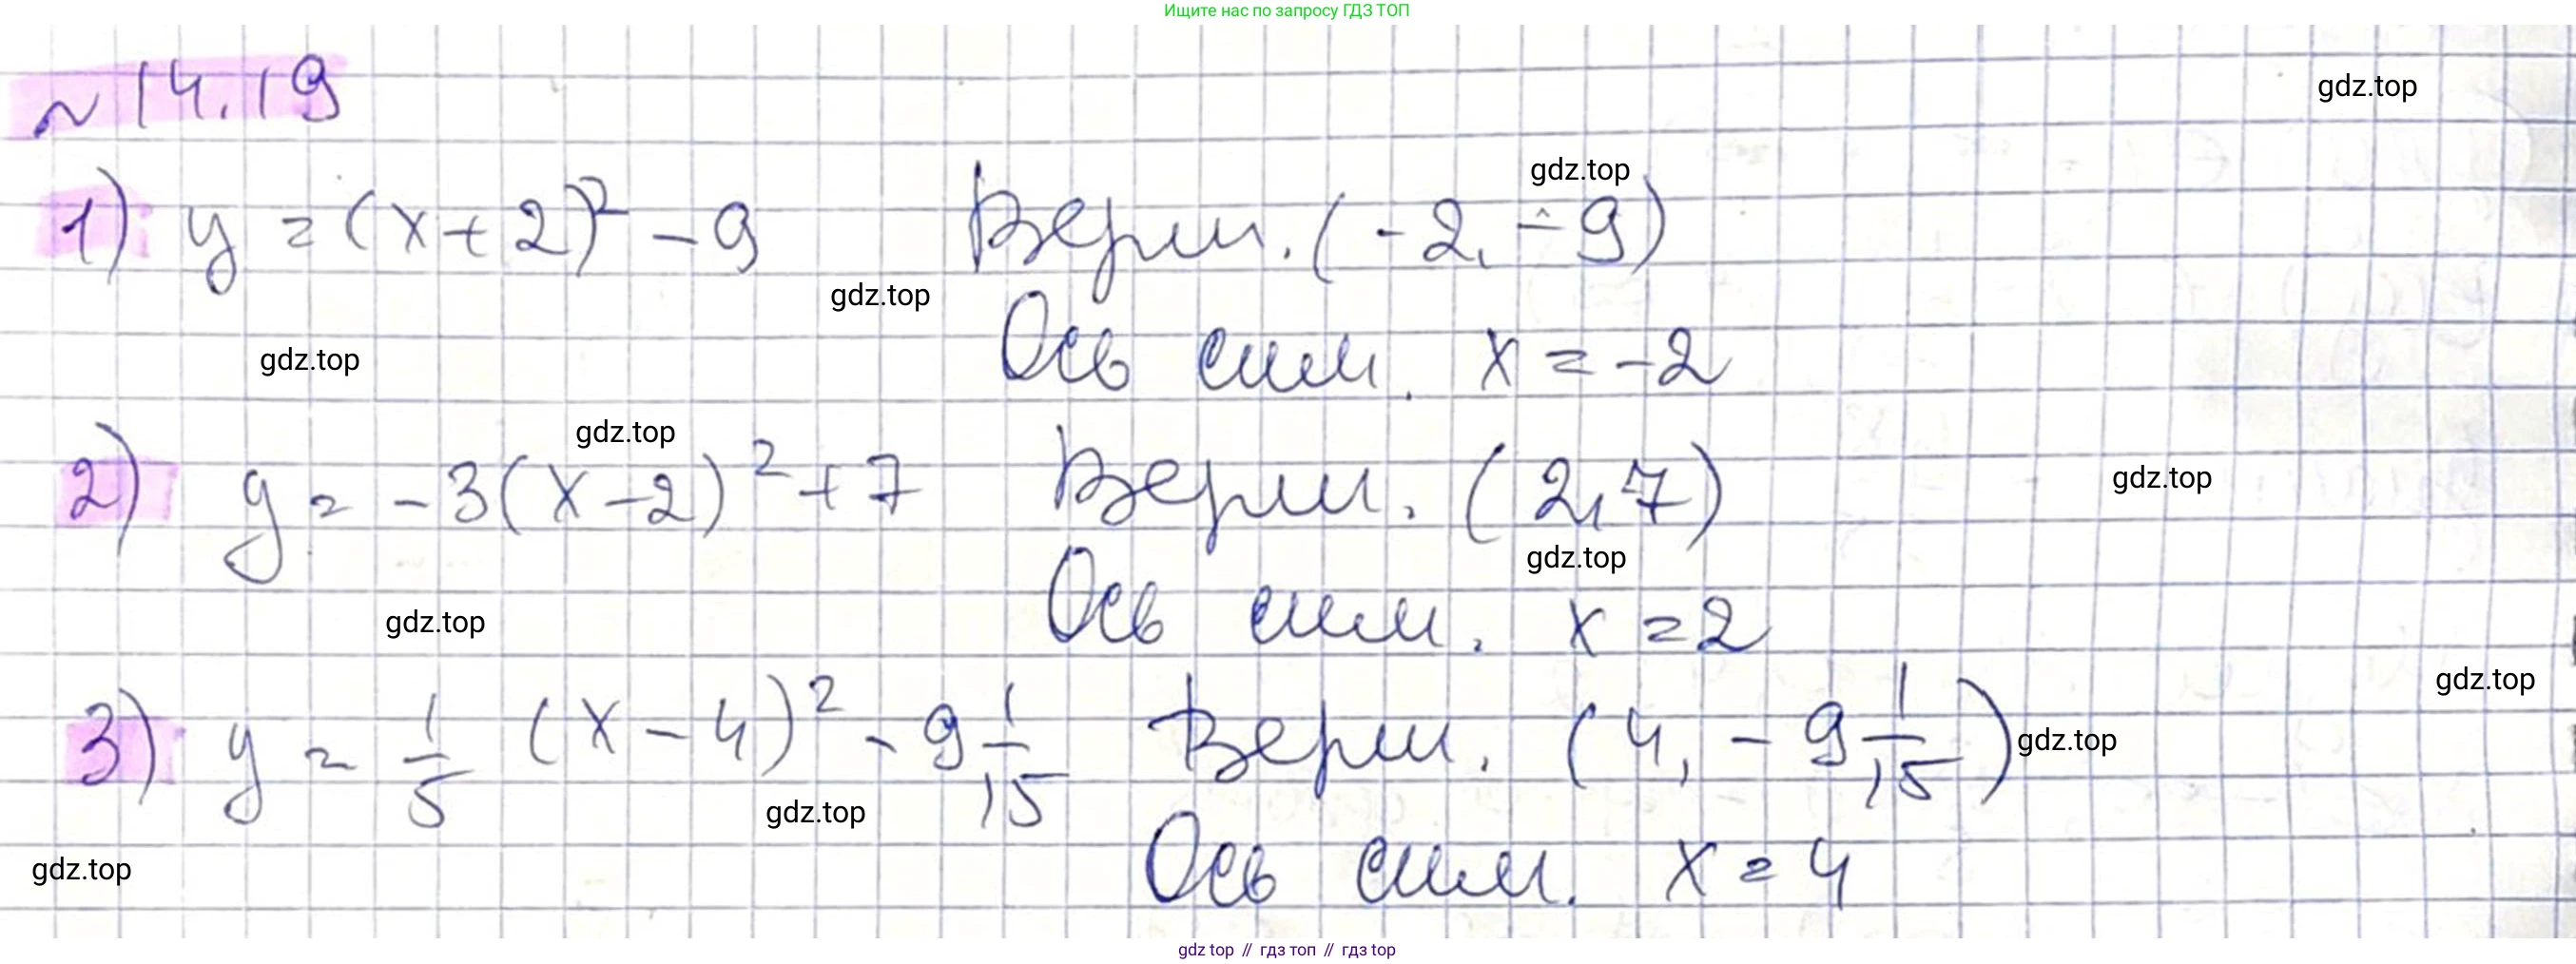 Ищите нас по запросу ГДЗ ТОП
№ 14.19
gdz.top
gdz.top
1) y = (x+2)² - 9 Верш. (-2, -9)
gdz.top
gdz.top
Ось сим. x = -2
gdz.top
2) y = -3(x-2)² + 7 Верш. (2, 7)
gdz.top
gdz.top
gdz.top
Ось сим. x = 2
gdz.top
3) y = 1/5 (x - 4)² - 9 1/15 Верш. (4, - 9 1/15)
gdz.top
gdz.top
gdz.top
Ось сим. x = 4
gdz top // гдз топ // гдз top